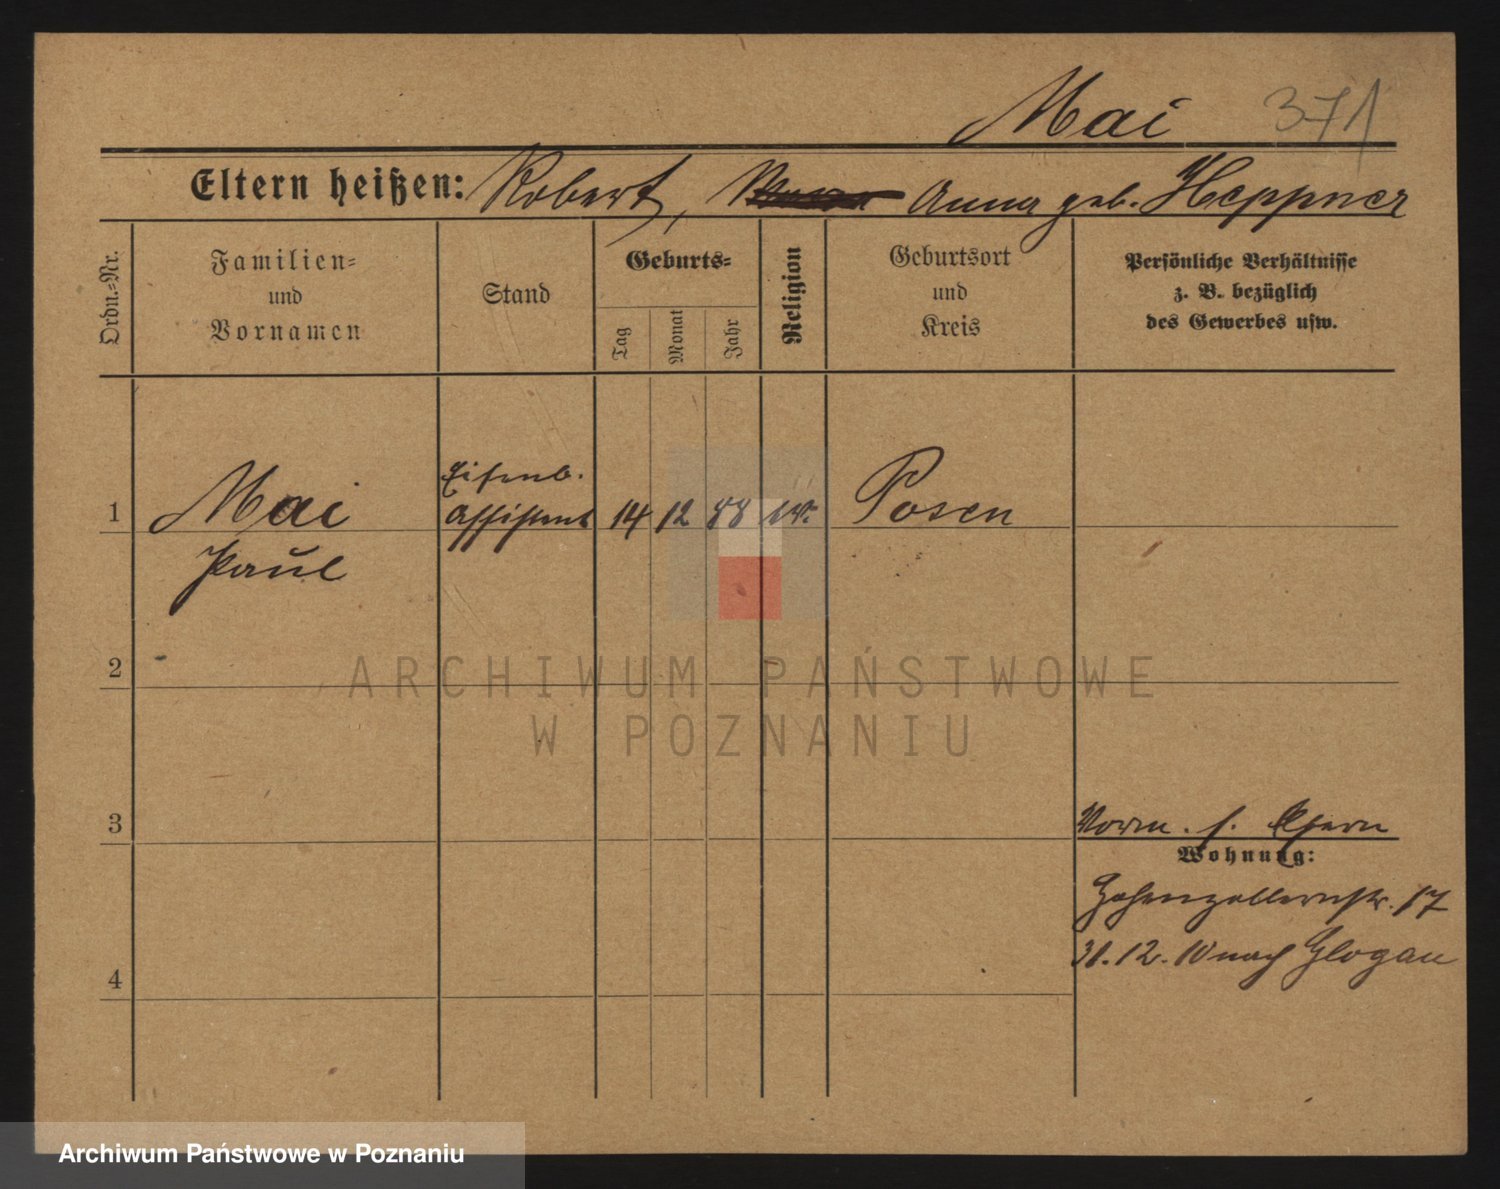 Mai 371
Eltern heißen: Robert, Anna geb. Heppner
Ordn.=Nr.
Familien=
und
Vornamen
Stand
Geburts=
Tag
Monat
Jahr
Religion
Geburtsort
und
Kreis
Persönliche Verhältnisse
z. B. bezüglich
des Gewerbes usw.
Eisenb.
1 Mai Assistent 14 12 88 ev. Posen
Paul
2
ARCHIWUM PAŃSTWOWE
W POZNANIU
3
Vorm. s.
Wohnung:
Hohenzollernstr. 17
31.12.10 nach Glogau
4
Archiwum Państwowe w Poznaniu